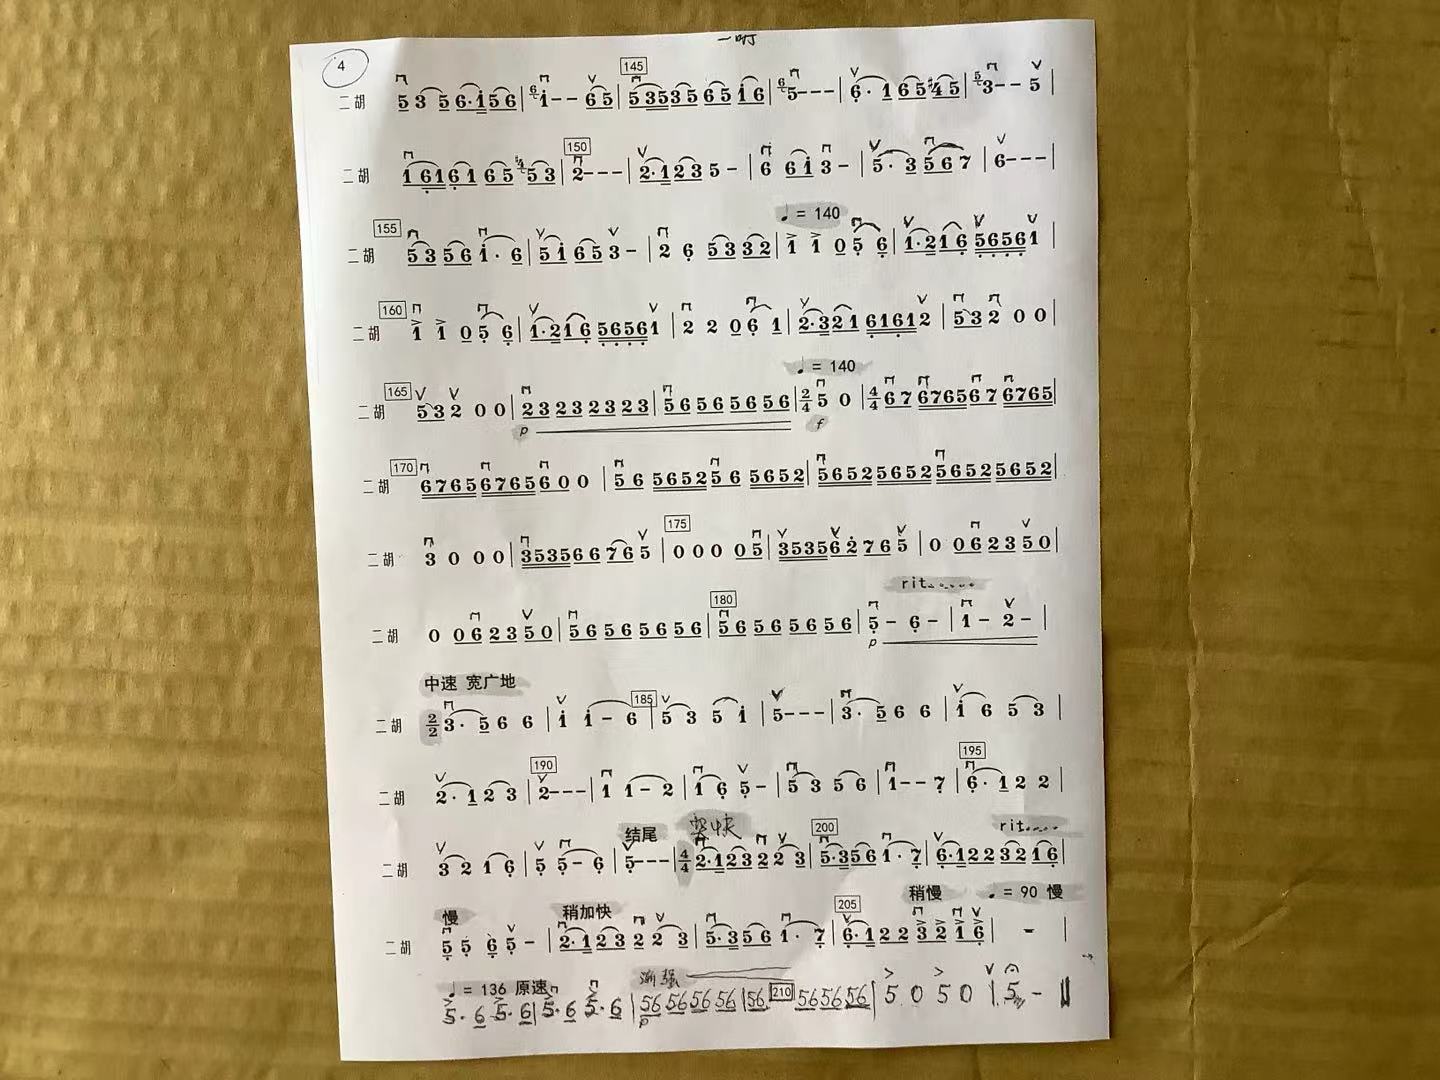 一吋
4
145
二胡 5 3 5 6·i 5 6 | i - - 6 5 | 5 3 5 3 5 6 5 i 6 | 5 - - - | 6· 1 6 5 4 5 | 3 - - 5 |
150
二胡 1 6 1 6 1 6 5 5 3 | 2 - - - | 2·1 2 3 5 - | 6 6 i 3 - | 5· 3 5 6 7 | 6 - - - |
155
♩ = 140
二胡 5 3 5 6 i· 6 | 5 i 6 5 3 - | 2 6 5 3 3 2 | 1 1 0 5 6 | 1·2 1 6 5 6 5 6 1 |
160
二胡 1 1 0 5 6 | 1·2 1 6 5 6 5 6 1 | 2 2 0 6 1 | 2·3 2 1 6 1 6 1 2 | 5 3 2 0 0 |
♩ = 140
165
二胡 5 3 2 0 0 | 2 3 2 3 2 3 2 3 | 5 6 5 6 5 6 5 6 | 2/4 5 0 | 4/4 6 7 6 7 6 5 6 7 6 7 6 5 |
p f
170
二胡 6 7 6 5 6 7 6 5 6 0 0 | 5 6 5 6 5 2 5 6 5 6 5 2 | 5 6 5 2 5 6 5 2 5 6 5 2 5 6 5 2 |
175
二胡 3 0 0 0 | 3 5 3 5 6 6 7 6 5 | 0 0 0 0 5 | 3 5 3 5 6 2 7 6 5 | 0 0 6 2 3 5 0 |
180
rit......
二胡 0 0 6 2 3 5 0 | 5 6 5 6 5 6 5 6 | 5 6 5 6 5 6 5 6 | 5 - 6 - | 1 - 2 - |
p
中速 宽广地
185
二胡 2/2 3· 5 6 6 | i i - 6 | 5 3 5 i | 5 - - - | 3· 5 6 6 | i 6 5 3 |
190
195
二胡 2· 1 2 3 | 2 - - - | 1 1 - 2 | 1 6 5 - | 5 3 5 6 | 1 - - 7 | 6· 1 2 2 |
结尾
200
rit.....
二胡 3 2 1 6 | 5 5 - 6 | 5 - - - | 4/4 2·1 2 3 2 2 3 | 5·3 5 6 1· 7 | 6·1 2 2 3 2 1 6 |
慢 稍加快 205 稍慢 ♩ = 90 慢
二胡 5 5 6 5 - | 2·1 2 3 2 2 3 | 5·3 5 6 1· 7 | 6·1 2 2 3 2 1 6 | - |
♩ = 136 原速 渐强
5· 6 5· 6 | 5· 6 5· 6 | 56 56 56 56 | 56 210 56 56 56 | 5 0 5 0 | 5 -
p